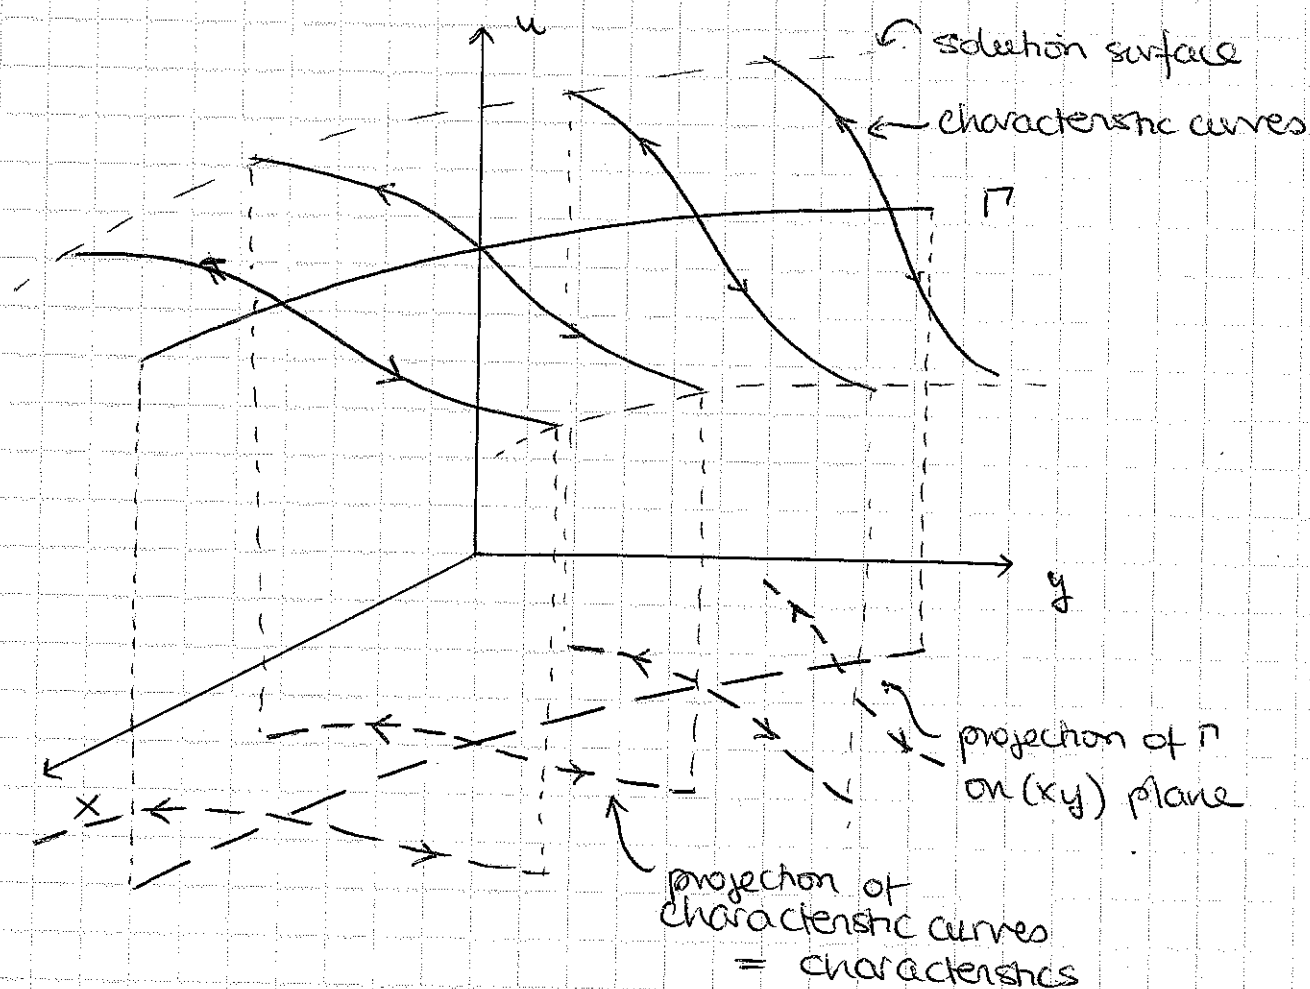 u
solution surface
characteristic curves
Γ
y
projection of Γ
on (xy) plane
x
projection of
characteristic curves
= characteristics